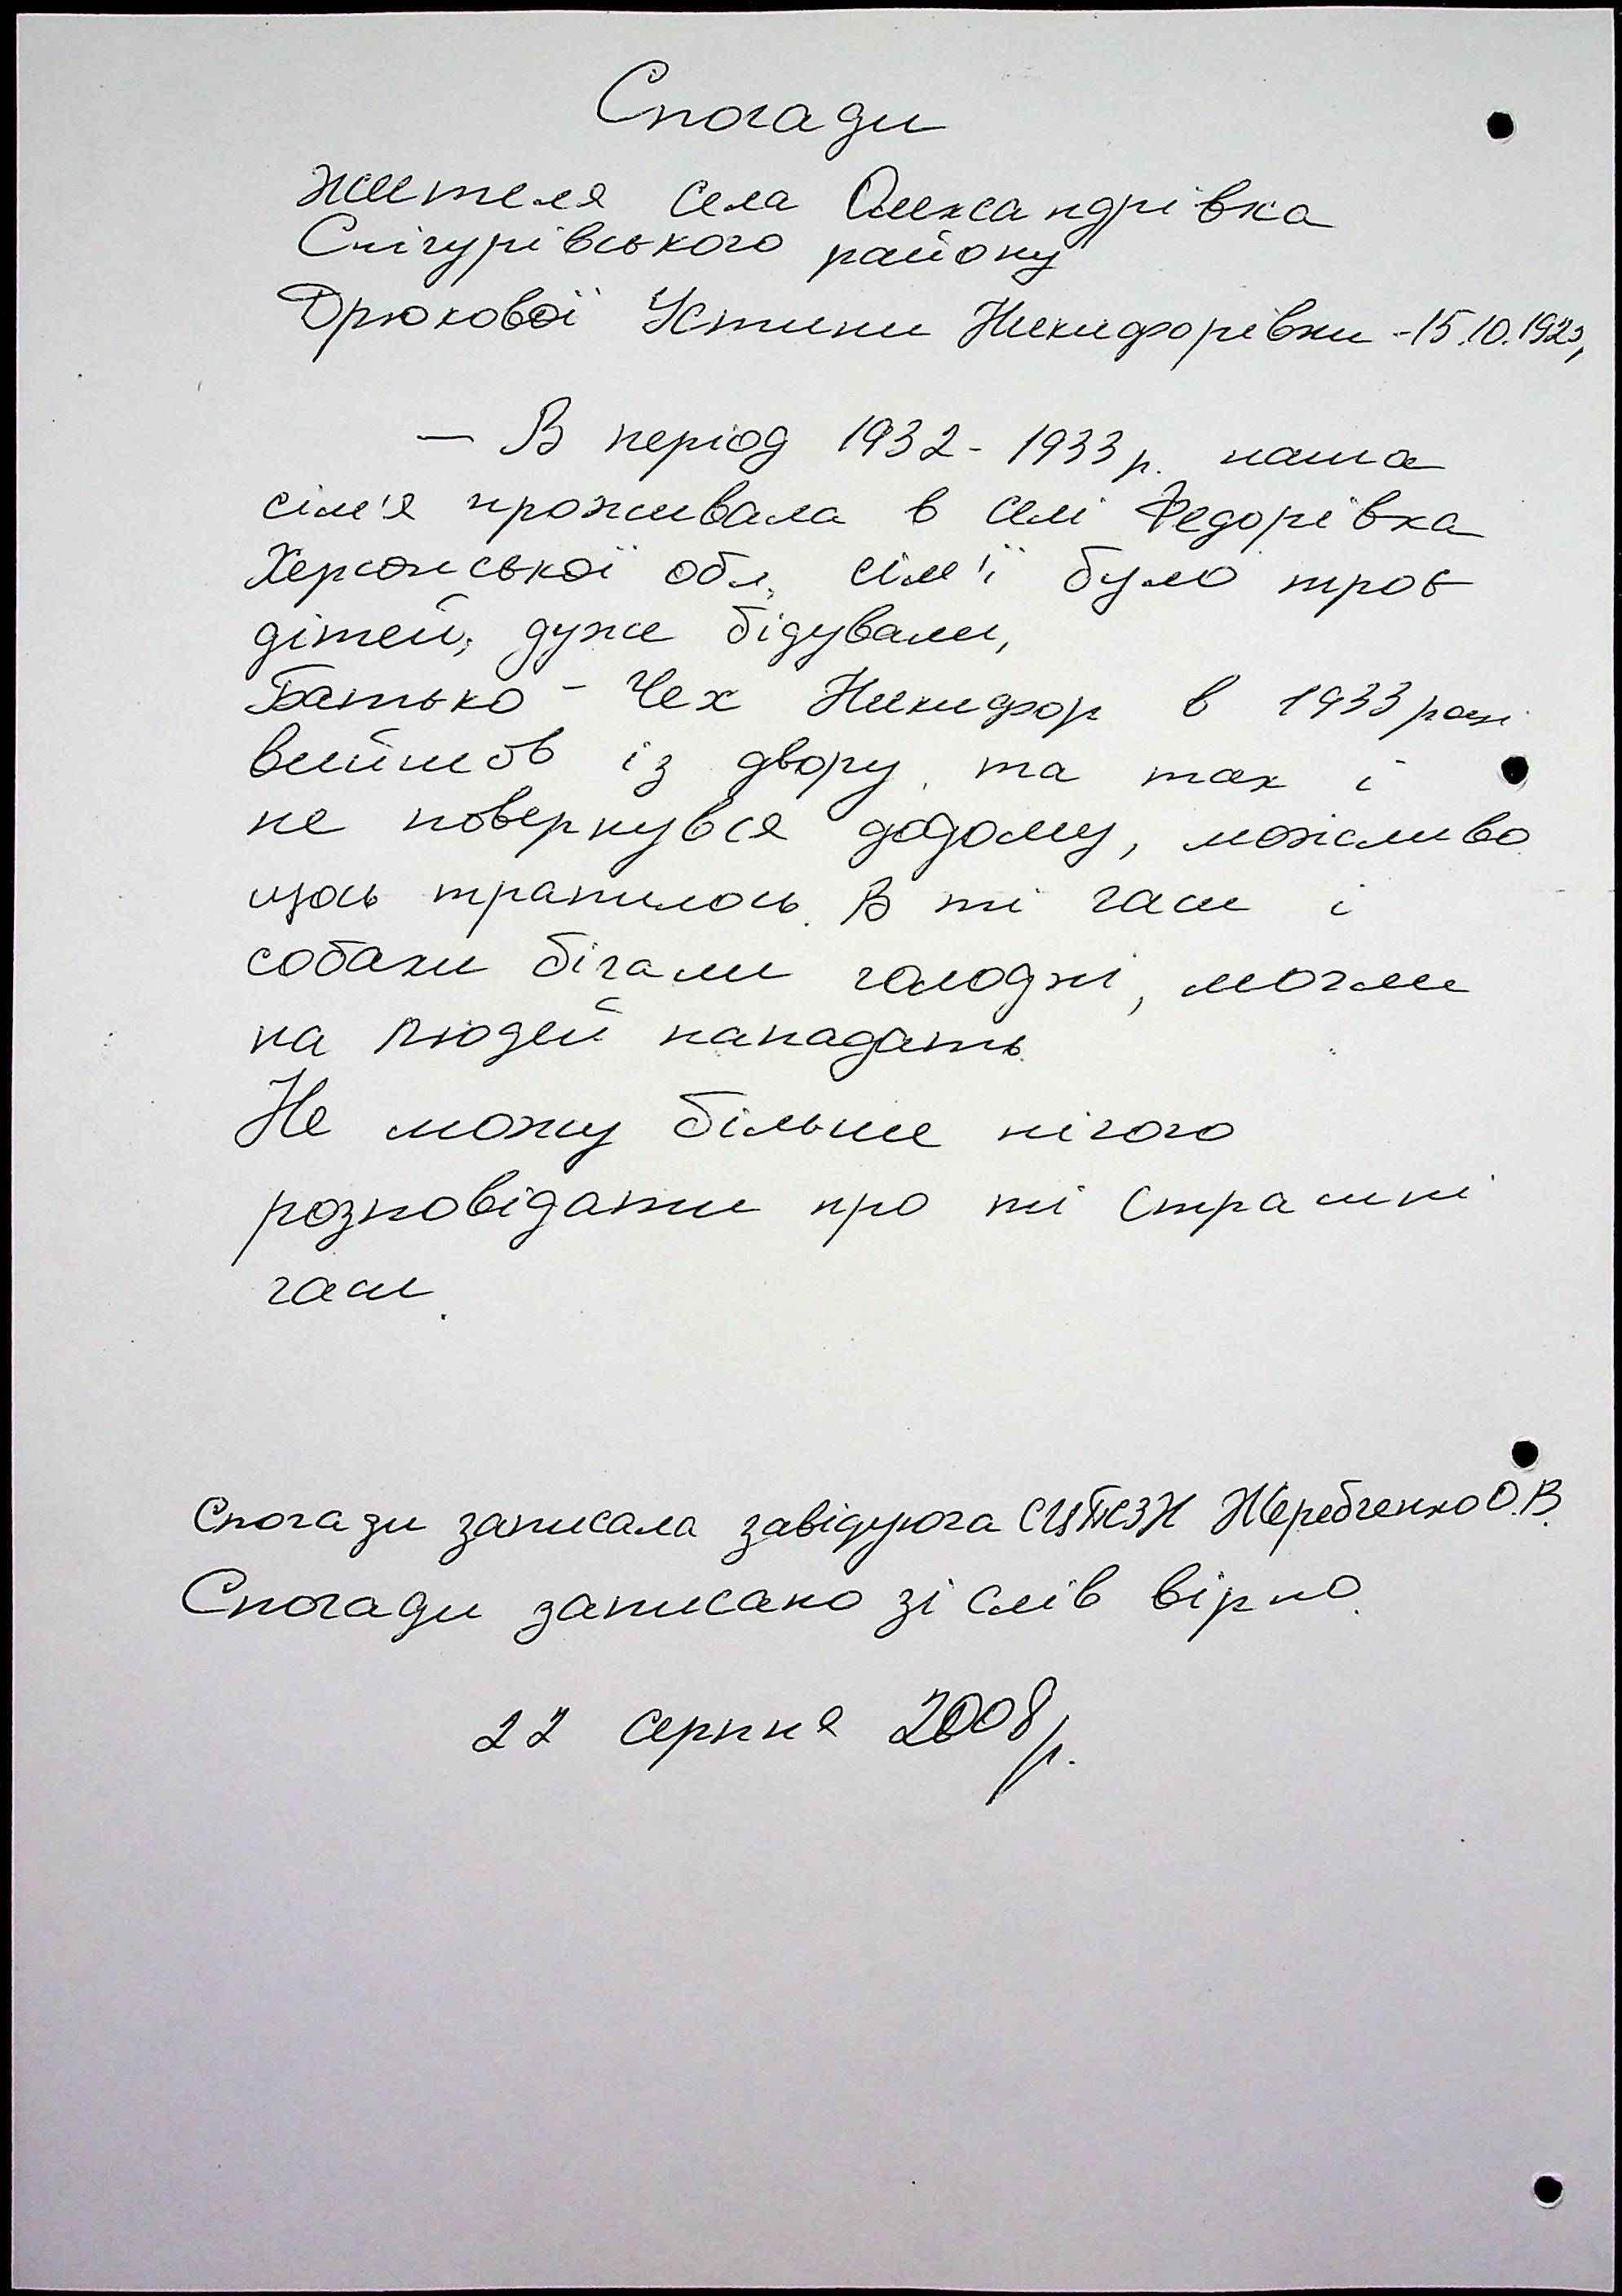 Спогади
жителя села Олександрівка
Снігурівського району
Дрюкової Устини Никифорівни -15.10.192
— В період 1932-1933р. наша
сім'я проживала в селі Федорівка
Херсонської обл, сім'ї було троє
дітей, дуже бідували,
Батько - Чех Никифор в 1933 році
вийшов із двору та так і
не повернувся додому, можливо
щось трапилось. В ті часи і
собаки бігали голодні, могли
на людей нападать.
Не можу більше нічого
розповідати про ті страшні
часи.
Спогади записала завідуюча Жеребченко О.В.
Спогади записано зі слів вірно.
22 серпня 2008р.